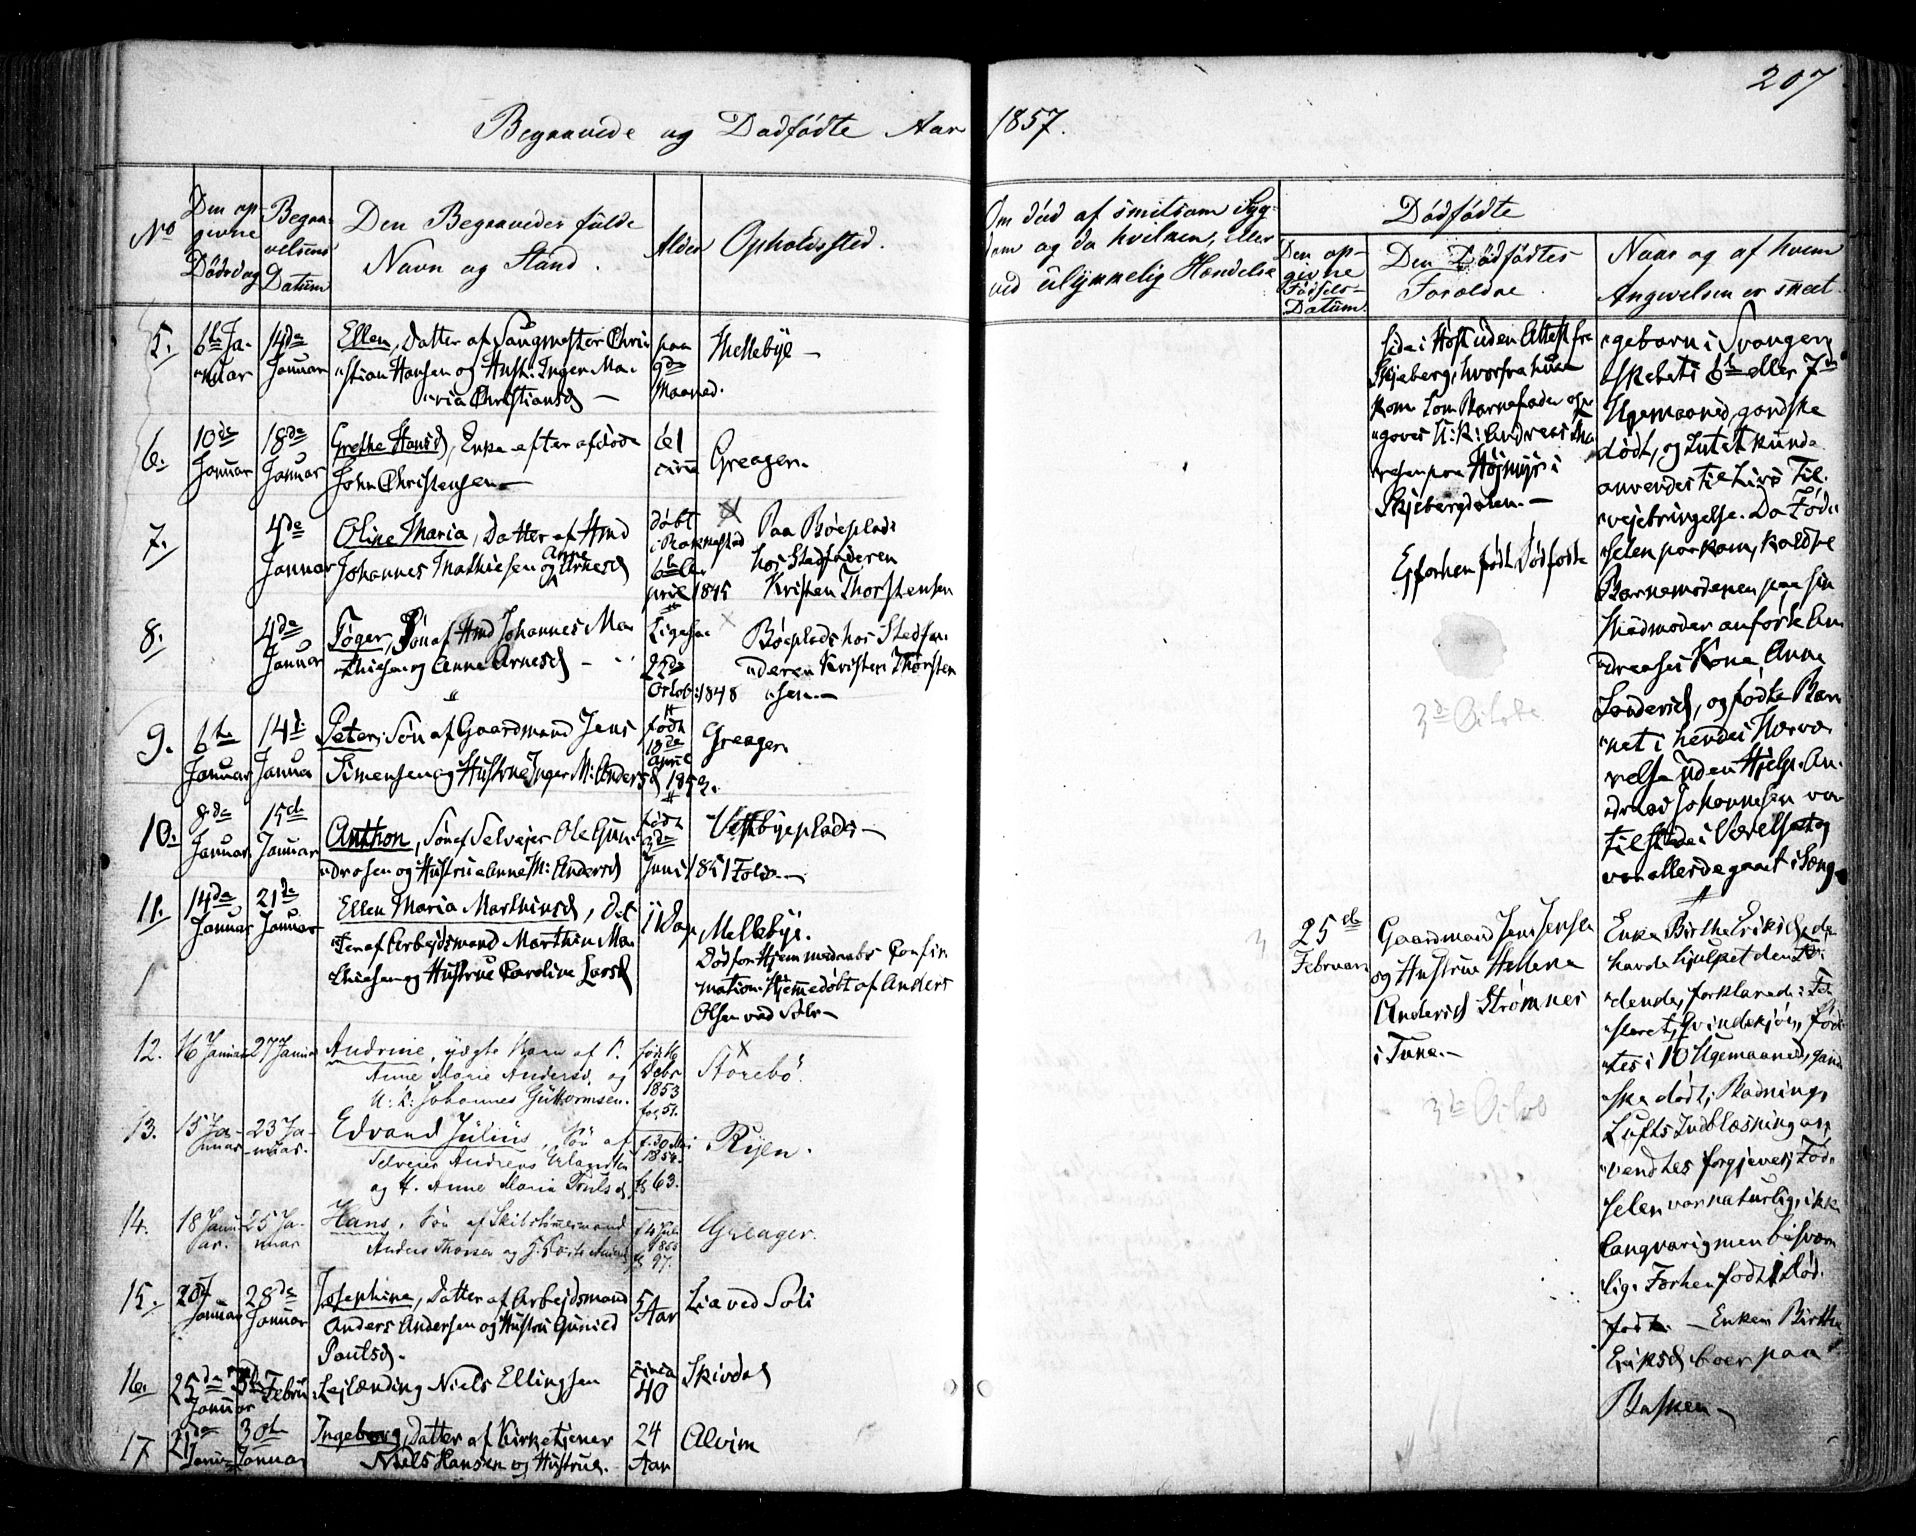 207
Begravede og Dødfødte Aar 1857.
No
Den op-
givne
Dødsdag
Begra-
velsens
Datum
Den Begravedes fulde
Navn og Stand.
Alder
Opholdssted.
Om død af smitsom Syg-
dom og da hvilken, eller
ved ulykkelig Hændelse
Dødfødte
Den op-
givne
Fødsels-
Datum.
Den Dødfødtes
Forældre.
Naar og af hvem
Angivelsen er skeet.
5. 6te Ja-
nuar
14de
Januar
Ellen, Datter af Christian
Hansen og Hust. Inger Ma-
ria Christiansd
paa
9de
Maaned.
Mellebye
6. 10de
Januar
18de
Januar
Grethe Hansd, Enke efter afdøde
John Christensen
61
circa
Greager.
7. 4de
Januar
Oline Maria, Datter af Hmd
Johannes Mathiesen og Anne Arnesd
døbt
6te A-
pril 1845
Paa Bøeplads
hos Stedfaderen
Kristen Thorstensen
8. 4de
Januar
Søn af Hmd Johannes Ma-
thiesen og Anne Arnesd
Ligesaa
25de
Octob: 1848
Bøeplads hos Stedfa-
deren Kristen Thorsten-
sen.
9. 6te
Januar
14de
Januar
Peter, Søn af Gaardmand Jens
Simensen og Hustrue Inger M: Andersd
født
18de
April
Greager
10. 8de
Januar
15de
Januar
Anthon, Søn af Selveier Ole Gun-
drosen og Hustrue Anne M: Andersd
født
3de
Juni 1851
Vestbyeplads
11. 14de
Januar
21de
Januar
Ellen Maria Marthinsd, Dat-
ter af Arbejdsmand Marthin Ma-
thiesen og Hustrue Caroline Larsd
1 Dag
Mellebye.
Død før Hjemmedaabs Confir-
mation. Hjemmedøbt af Anders
Olsen ved Soli
12. 16 Januar
27 Januar
Andrine, uægte Barn af P.
Anne Marie Andersd. og
U: K: Johannes Guttormsen.
født 16
Debr
1853
fol 51.
Storebø.
13. 15 Ja-
nuar
23 Ja-
nuar.
Edvard Julius, Søn af
Selveier Andreas Erlandsen
og H. Anne Maria Poulsd.
f. 30 Mai
fol 63.
Ryen.
14. 18 Janu-
ar.
25 Ja-
nuar
Hans, Søn af
Anders Thorsen og
f 4 Juli
1855
fol 97.
Greager.
15. 20de
Januar
28de
Januar
Josephine, Datter af Arbejdsmand
Anders Andersen og Hustru Gunild
Poulsd.
5 Aar
Lia ved Soli
16. 25de
Januar
Febru
Lejlænding Niels Ellingsen
circa
40
Skivdal
17 21de
Januar
30te
Januar
Ingeborg, Datter af Kirketjener
Niels Hansen og Hustrue.
24
Aar
Alvim
side i Høst uden Attest fra
Skjeberg, hvorfra hun
kom. Som Barnefader opgi-
goves U: K: Andreas
paa Høsmyr i
Skjebergdalen.
Ej forhen født Dødfødte
3de October
geborn i Svanger-
skabets 6te eller 7de
Ugemaaned, ganske
dødt, og Intet kunde
anvendes til Livs Til-
vejebringelse. Da Fød-
selen paakom, kaldte
Barnemoderen paa sin
Huusmoder anførte An-
dreases Kone, Anne
og fødte Bar-
net i hendes Nærvæ-
relse uden Hjelp. An-
dreas Johannesen var
tilstede i Værelset og
var allerede gaaet i Seng.
3 25de
Februar
Gaardmand Jens Jensen
og Hustrue Hellene
Andersd Strømnes
i Tune.
3de Octob
Enke Birthe Eriksd, der
havde hjulpet den Fø-
dende, forklarede: Fo-
steret, Qvindekjøn, fød-
tes i 10 Ugemaaned, gan-
ske dødt; Badning,
Lufts Indblæsning an-
vendtes forgjeves; Fød-
selen var naturlig, ikke
langvarig men besvær-
lig. Forhen født 1 Død-
født. – Enken Birthe
Eriksd boer paa